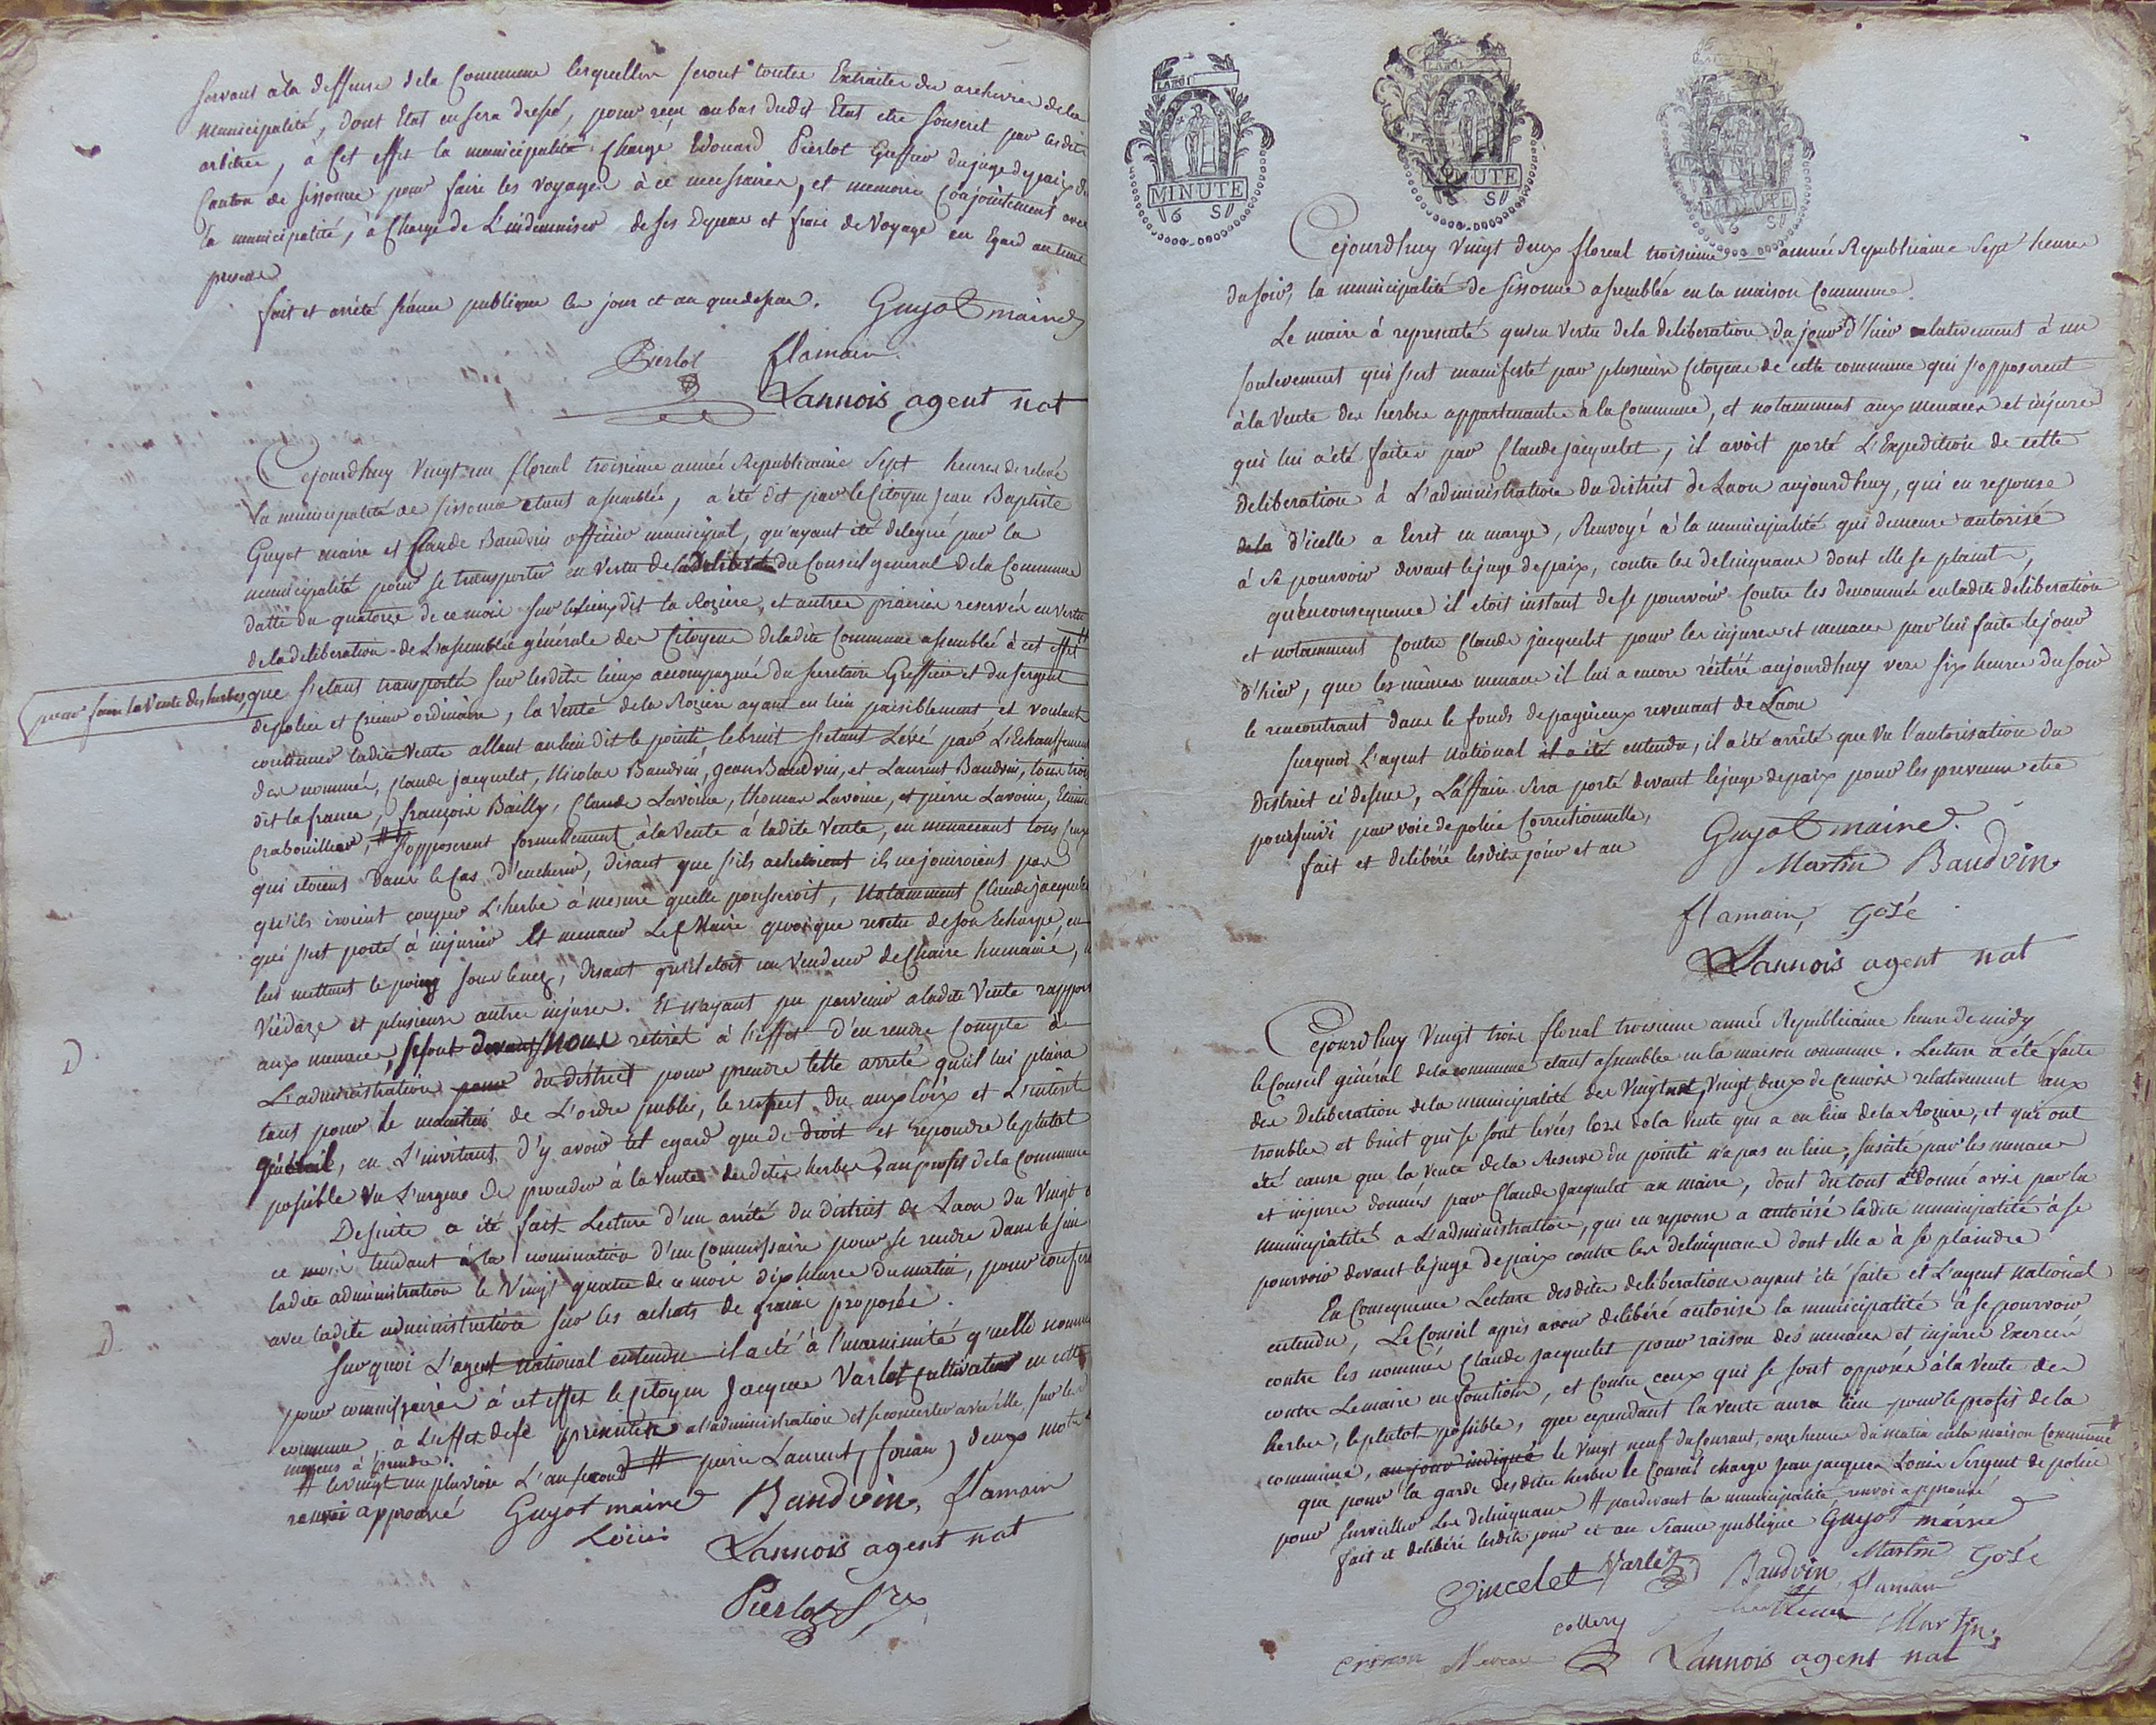 servant à la deffense dela Commune lesquelles seront toutes Extraites des archives dela
municipalité, dont Etat en sera dressé, pour reçu au bas dudit Etat etre souscrit par lesdits
arbitres, à cet effet la municipalité Charge Edouard Pierlot Greffier du juge depaix du
Canton de sissonne pour faire les voyages à ce necessaires, et memoire Conjointement avec
la municipalité, à Charge de L'indemniser de ses Depens et frais de Voyage eu Egard au tems
present
fait et arrêté séance publique les jour et an que dessus. Guyot maire
Pierlot flamain
Lannois agent nat
Cejourdhuy Vingt un floreal troisieme année Republicaine Sept heures de relevé
la municipalité de sissonne etant assemblée, a été dit par le Citoyen Jean Baptiste
Guyot maire et Claude Baudvin officier municipal, qu'ayant été delegué par la
municipalité pour se transporter en vertu de la deliberé du Conseil general dela Commune
datté du quatorze de ce mois sur les lieux dit la Rozière, et autres prairies reservées en vertu
dela deliberation de L'assemblée générale des Citoyens deladite Commune assemblée à cet effet
pour faire la Vente des herbes, que s'etant transporté sur lesdits lieux accompagné du secretaire Greffier et du sergent
depolice et Crieur ordinaire, la Vente dela Rozière ayant eu lieu paisiblement et voulant
continuer ladite Vente allant au lieu dit le pointé, le bruit s'etant Levé par L'Echauffement
des nommés, Claude jacquelet, Nicolas Baudvin, jean Baudvin, et Laurent Baudvin, tous trois
dit la france, françois Bailly, Claude Lavoine, thomas Lavoine, et pierre Lavoine, Etienne
Crabouillier, # s'opposerent formellement à la Vente à ladite Vente, en menaceant tous Ceux
qui etoient Dans le Cas d'encherir, disant que s'ils achetoient ils ne jouiroient pas
qu'ils iroient couper L'herbe à mesure quelle pousseroit, Notamment Claude jacquelet
qui s'est porté à injurier et menacer Le Maire quoique revetu de son Echarpe, en
lui mettant le poing sous le nez, disant qu'il etoit un Vendeur de Chaire humaine,
Viédaze et plusieurs autres injures. Et n'ayant pu parvenir a ladite Vente rapport
aux menaces, se sont devant Nous retiret à l'effet d'en rendre Compte à
L'administration pour du district pour prendre telle arreté qu'il lui plaira
tant pour le maintien de L'ordre public, le respect du aux loix et L'interet
général, en L'invitant d'y avoir tel egard que de droit et repondre le plutot
possible Vu L'urgence De proceder à la Vente desdites herbes, au profit dela Commune
Desuite a été fait Lecture d'un arrêté du district de Laon du Vingt
ce mois tendant à la nomination d'un Commissaire pour se rendre Dans le sein
ladite administration le Vingt quatre de ce mois dix heures du matin, pour conferer
avec ladite administration sur les achats de grains proposés.
Surquoi L'agent national entendu il a été à l'unanimité qu'elle nomme
pour commissaires à cet effet le Citoyen Jacque Varlet Cultivateur en cette
commune, à L'effet de se présenter a l'administration et se concerter avec elle, sur les
moyens à prendre.
# levingt un pluviôse L'an second # pierre Laurent, soriau, deux mots
renvoi approuvé Guyot maire Baudvin, flamain
Loüis Lannois agent nat
Pierlot Srex
LA LOI
MINUTE
6 S
LA LOI
MINUTE
6 S
MINUTE
6 S
Cejourdhuy Vingt deux floreal troisieme année Republicaine Sept heures
du soir, la municipalité de Sissonne assemblée en la maison Commune.
Le maire à representé qu'en Vertu dela deliberation du jour d'hier relativement à un
soulevement qui s'est manifesté par plusieurs Citoyens de cette commune qui s'opposerent
à la Vente des herbes appartenantes à la Commune, et notamment aux menaces et injures
qui lui a été faites par Claude jacquelet, il avoit porté L'Expedition de cette
deliberation à L'administration du district de Laon aujourdhuy, qui en reponse
dela d'icelle a Ecret en marge, Renvoyé à la municipalité qui demeure autorisé
à se pourvoir devant le juge depaix, contre les delinquans dont elle se plaint,
qu'en consequence il etoit instant de se pourvoir Contre les denommés en ladite deliberation
et notamment Contre Claude jacquelet pour les injures et menaces par lui faite le jour
d'hier, que les mêmes menaces il lui a encore réitéré aujourdhuy vers six heures du soir
le rencontrant dans le fonds depagneux revenant de Laon
Surquoi L'agent National il a été entendu, il a été arrêté que Vu l'autorisation du
District ci dessus, L'affaire Sera porté devant le juge depaix pour les prevenus etre
poursuivi par voie depolice Correctionnelle,
fait et delibéré lesdits jour et an
Guyot maire
Martin Baudvin
flamain, Gosé
Lannois agent nat
Cejourdhuy Vingt trois floreal troisieme année Republicaine heure de midy
le Conseil général dela commune etant assemblée en la maison commune. Lecture a été faite
des Deliberation dela municipalité des Vingt un, Vingt deux de Cemois relativement aux
troubles et bruit qui se sont levées lors dela Vente qui a eu lieu dela Rozière, et qui ont
eté cause que la Vente dela Reserve du pointé n'a pas eu lieu, suscité par les menaces
et injures donnés par Claude Jacquelet au maire, dont du tout a été donné avis par la
municipalité a L'administration, qui en reponse a autorisé ladite municipalité à se
pourvoir devant le juge depaix contre les delinquans dont elle a à se plaindre
En Consequence Lecture desdites deliberations ayant été faite et L'agent National
entendu, Le Conseil après avoir delibéré autorise la municipalité à se pourvoir
contre les nommés Claude Jacquelet pour raison des menaces et injures Exercées
contre Lemaire en fonctions, et Contre ceux qui se sont opposés à la Vente des
herbes, le plutot possible, que cependant la vente aura lieu pour le profit de la
commune, au jour indiqué le vingt neuf du Courant, onze heures du matin en la maison Commune #
que pour la garde desdites herbes le Conseil charge jean jacques Louis Sergent de police
pour surveiller les delinquans # pardevant la municipalité, renvoi approuvé
fait et delibéré lesdits jour et an Séance publique Guyot maire
Vincelet Varlet Baudvin Martin Gosé
flamain
collery Martin
Crinon Lannois agent nat